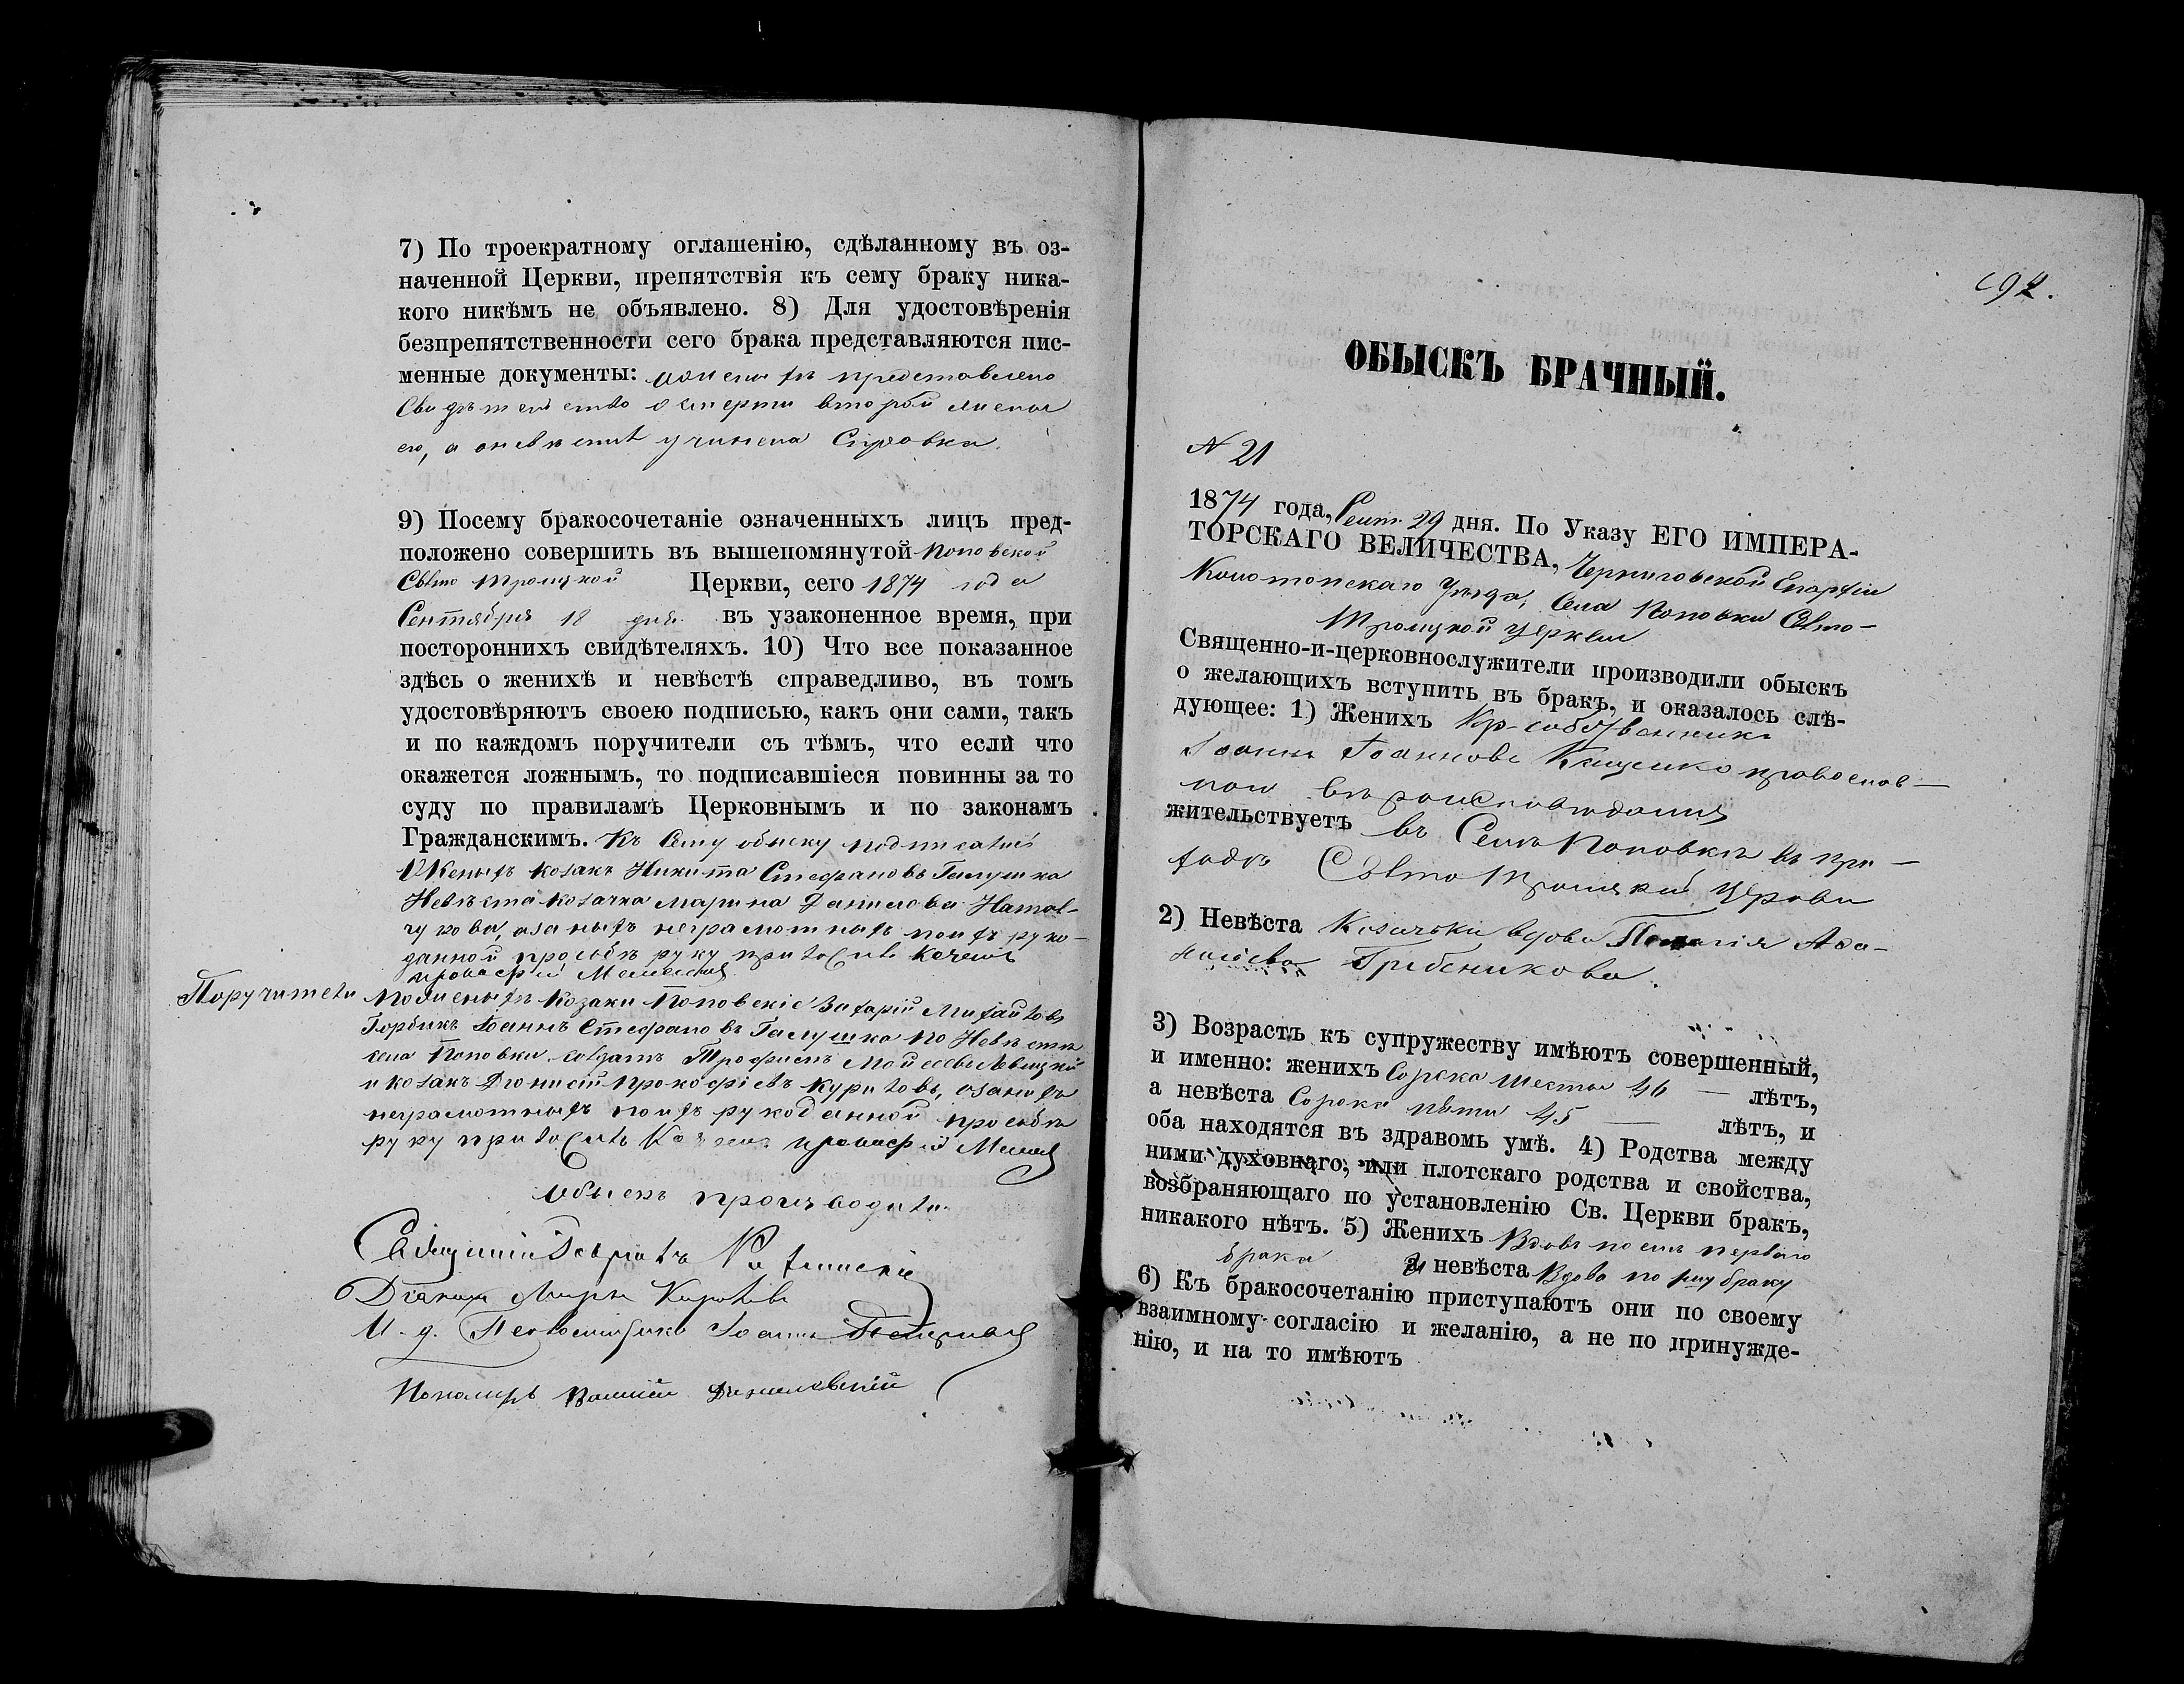 7) По троекратному оглашенію, сдѣланному въ оз-
наченной Церкви, препятствія къ сему браку ника-
кого никѣмъ не объявлено. 8) Для удостовѣренія
безпрепятственности сего брака представляются пис-
менные документы: представлено
Свидѣтельство о смерти второй жены
его, а о невѣсте учинена Справка.
9) Посему бракосочетаніе означенныхъ лицъ пред-
положено совершить въ вышепомянутой Поповской
Свято Троицкой Церкви, сего 1874 года
Сентября 18 дня въ узаконенное время, при
постороннихъ свидѣтеляхъ. 10) Что все показанное
здѣсь о женихѣ и невѣстѣ справедливо, въ томъ
удостовѣряютъ своею подписью, какъ они сами, такъ
и по каждомъ поручители съ тѣмъ, что если что
окажется ложнымъ, то подписавшіеся повинны за то
суду по правиламъ Церковнымъ и по законамъ
Гражданскимъ. Къ сему обыску подписались
Женихъ козакъ Никита Стефановъ Галушка
Невѣста козачка Марина Данилова
неграмотныхъ по ихъ руко-
данной прозьбѣ руку приложилъ
Поручители По женихѣ Козаки Поповскіе Захарій Михайловъ
Горбикъ Іоаннъ Стефановъ Галушка по Невѣстѣ
села Поповки солдатъ Трофимъ
и козакъ Діонисій Прокофіевъ Куриловъ, а за нихъ
неграмотныхъ по ихъ рукоданной прозьбѣ
руку приложилъ
Обыскъ производили
Священникъ
Діаконъ Марко
И. д. Псаломщика Іоаннъ
Пономарь
92.
ОБЫСКЪ БРАЧНЫЙ.
N 21
1874 года, Сент. 29 дня. По Указу ЕГО ИМПЕРА-
ТОРСКАГО ВЕЛИЧЕСТВА, Черниговской Епархіи
Конотопскаго Уѣзда, Села Поповки Свято-
Троицкой церкви
Священно-и-церковнослужители производили обыскъ
о желающихъ вступить въ бракъ, и оказалось слѣ-
дующее: 1) Женихъ Кр-собственникъ
Іоаннъ Іоанновъ православ-
наго вѣроисповѣданія
жительствуетъ въ Селѣ Поповкѣ въ при-
ходѣ Свято Троицкой Церкви
2) Невѣста Козачька вдова Пелагія Афа-
насіева Гребеникова.
3) Возрастъ къ супружеству имѣютъ совершенный,
и именно: женихъ Сорока шести 46 — лѣтъ,
а невѣста Сорока пяти 45 — лѣтъ, и
оба находятся въ здравомь умѣ. 4) Родства между
ними духовнаго, или плотскаго родства и свойства,
возбраняющаго по установленію Св. Церкви бракъ,
никакого нѣтъ. 5) Женихъ Вдовъ послѣ перваго
брака а невѣста Вдова по 1му браку
6) Къ бракосочетанію приступаютъ они по своему
взаимному согласію и желанію, а не по принужде-
нію, и на то имѣютъ